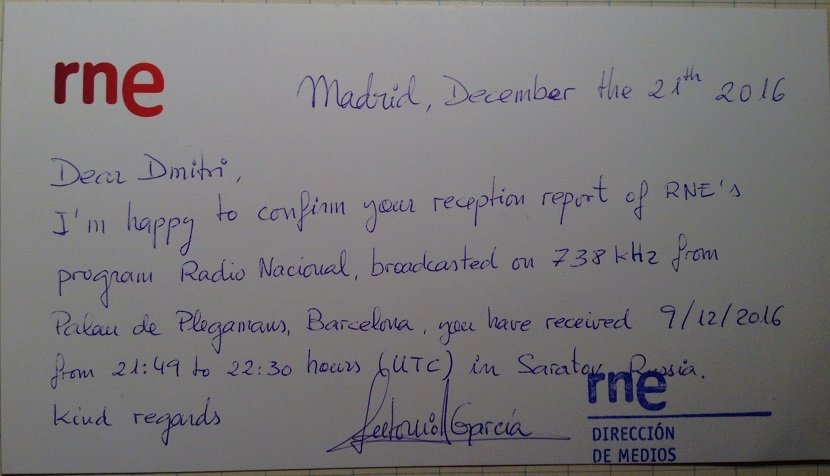 rne
Madrid, December the 21th 2016
Dear Dmitri,
I'm happy to confirm your reception report of RNE's
program Radio Nacional, broadcasted on 738 kHz from
Palau de Plegamans, Barcelona, you have received 9/12/2016
from 21:49 to 22:30 hours (UTC) in Saratov, Russia.
Kind regards
García
rne
DIRECCIÓN
DE MEDIOS